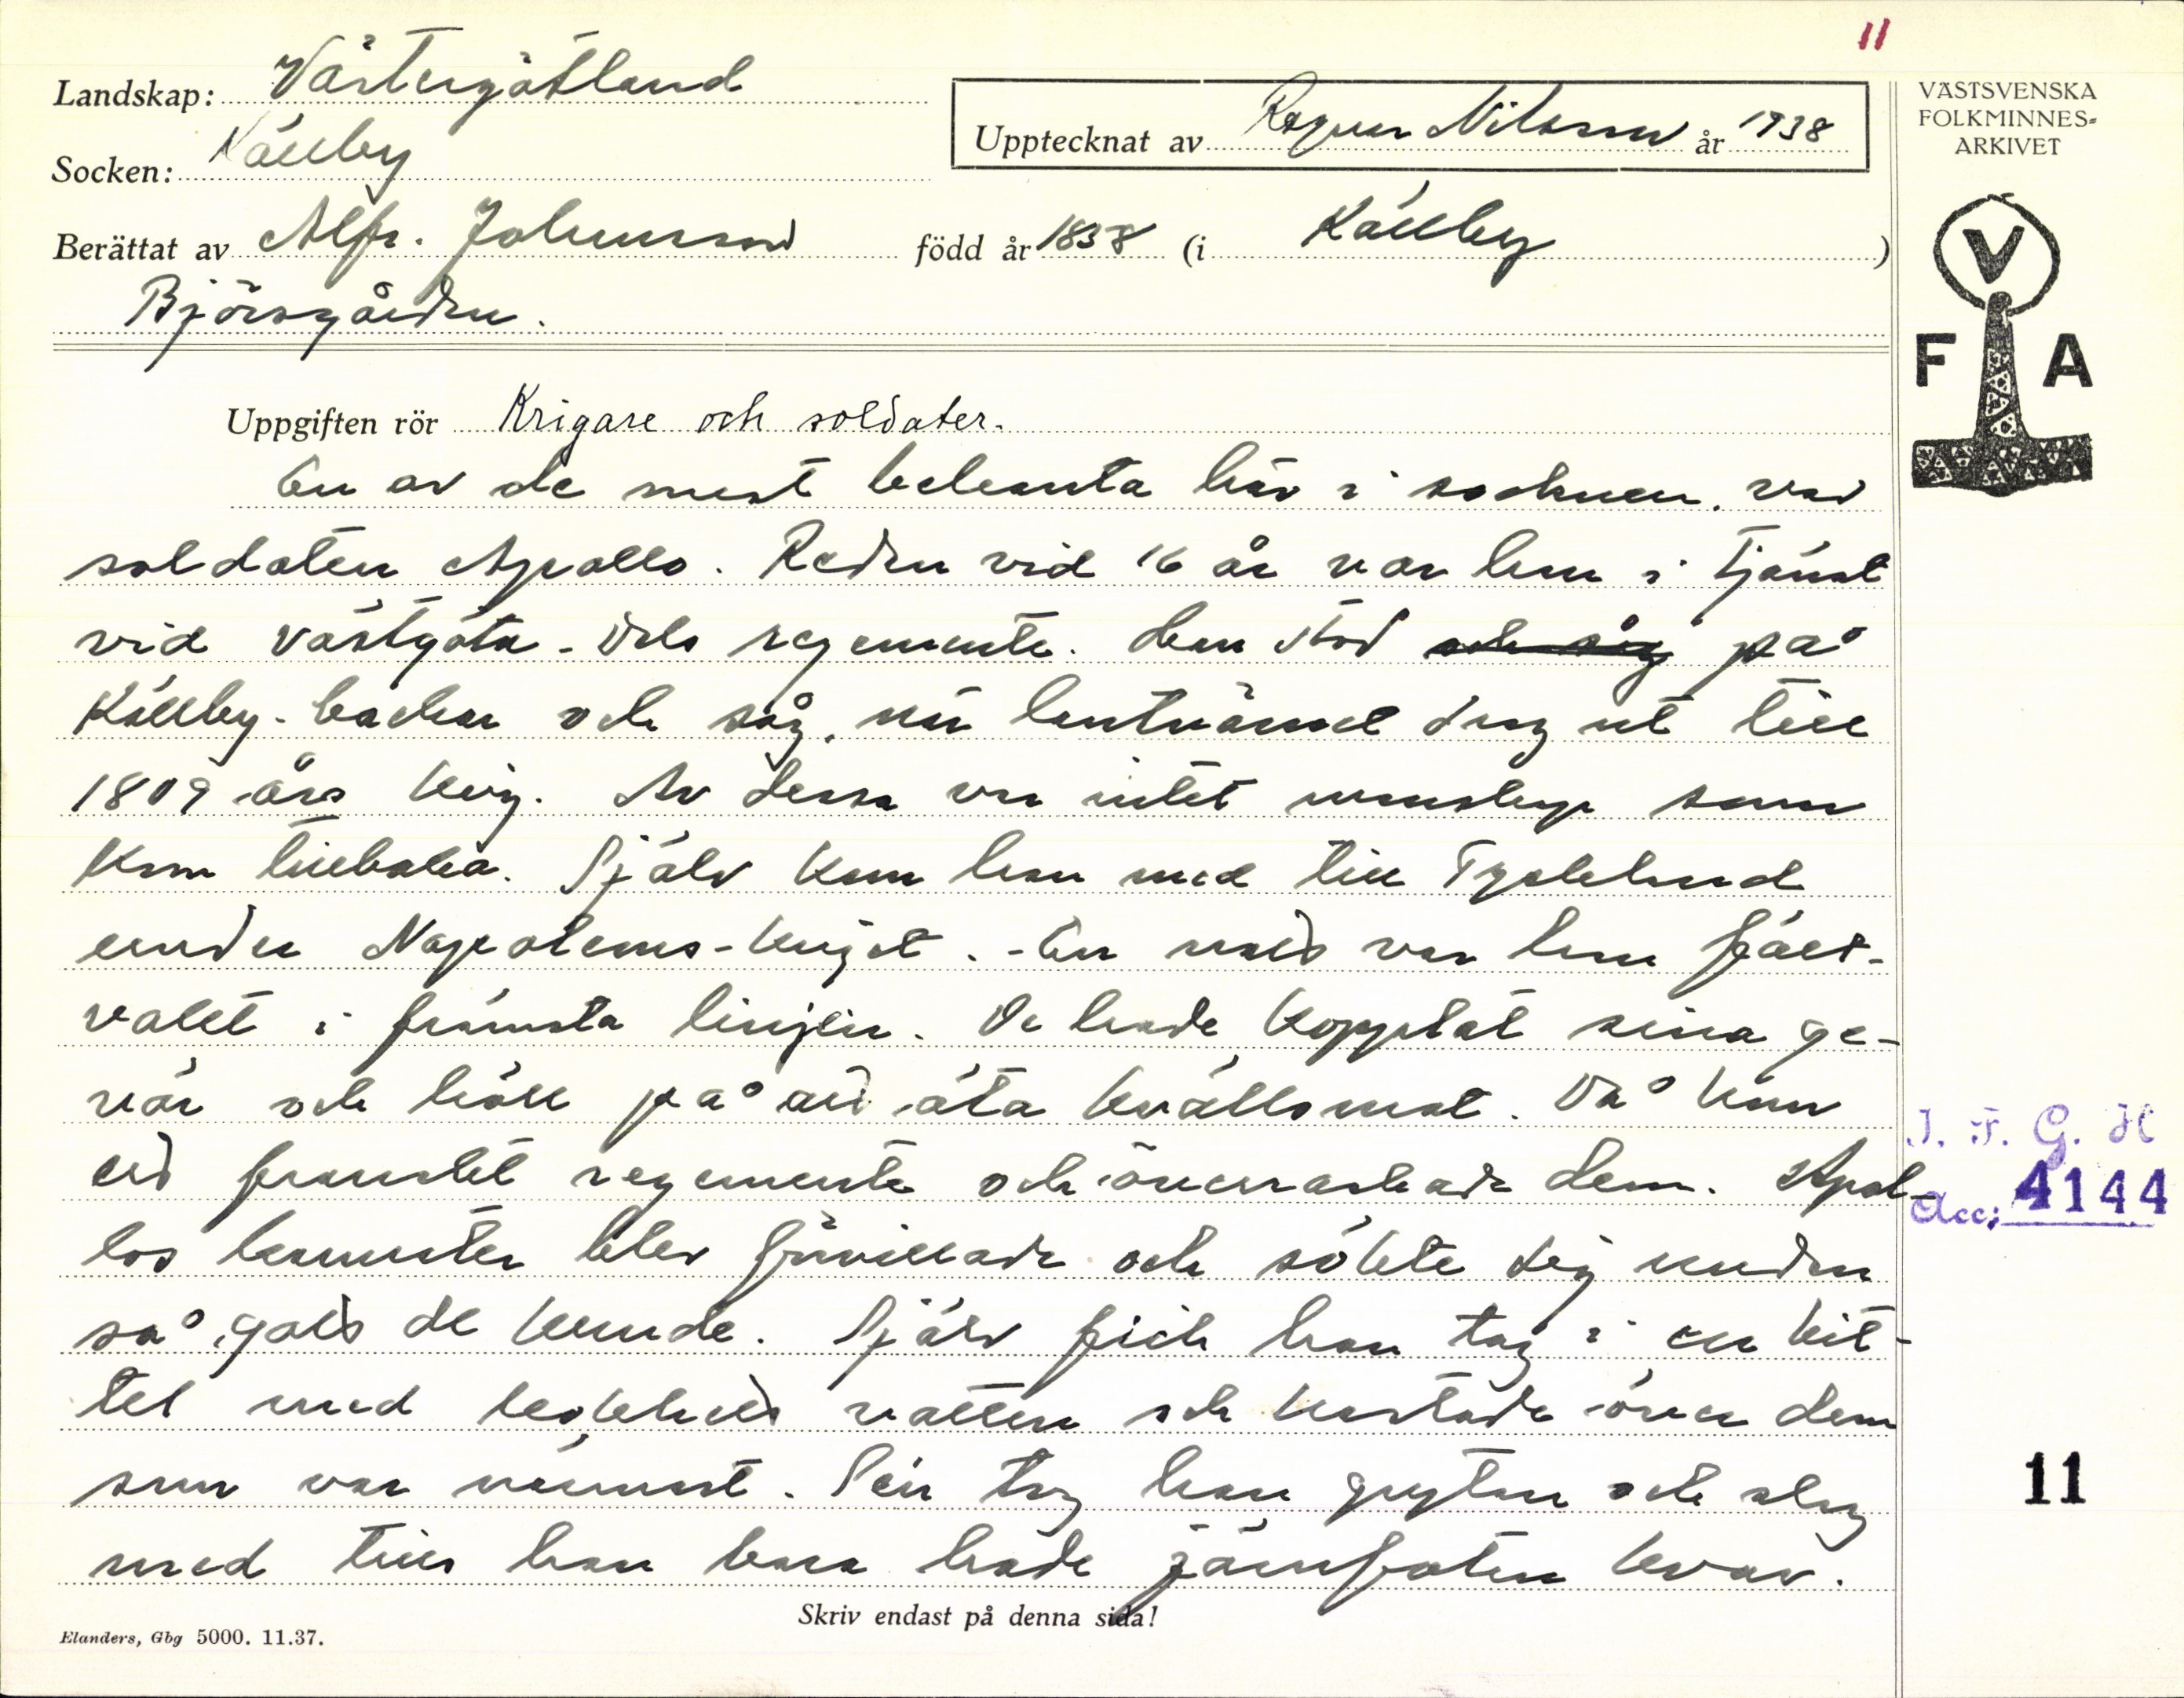 11
Landskap: Västergötland
Socken: Källby
Upptecknat av Ragnar Nilsson år 1938
Berättat av Alfr. Johansson född år 1858 (i Källby )
Björsgården.
VÄSTSVENSKA
FOLKMINNES-
ARKIVET
V
F A
Uppgiften rör Krigare och soldater.
En av de mest bekanta här i socknen, var
soldaten Apollo. Redan vid 16 år var han i tjänst
vid västgöta-Dals regemente. Han stod och såg på
Källby-backen och såg, när lantvärnet drog ut till
1809 års krig. Av dessa var intet manskap som
kom tillbaka. Själv kom han med till Tyskland
under Napoleons-kriget. - En natt var han fält-
vakt i främsta linjen. De hade kopplat sina ge-
vär och höll på att äta kvällsmat. Då kom
ett franskt regemente och överraskade dem. Apol-
los kamrater blev förvillade och sökte dej undan
så gott de kunde. Själv fick han tag i en kit-
tel med kokhett vatten och kastade över dem
som var närmst. Sen tog han grytan och slog
med tills han bara hade järnfoten kvar.
J. F. G. H
Acc: 4144
11
Skriv endast på denna sida!
Elanders, Gbg 5000. 11.37.